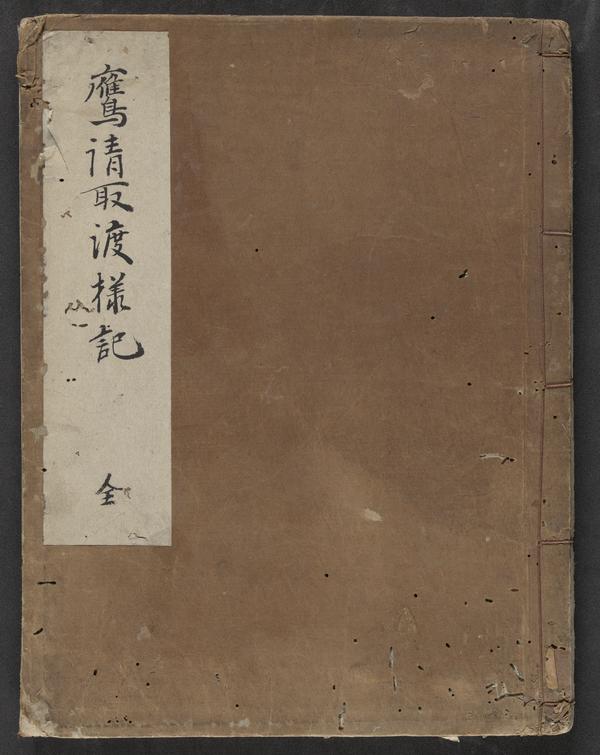 鷹請取渡様記
全